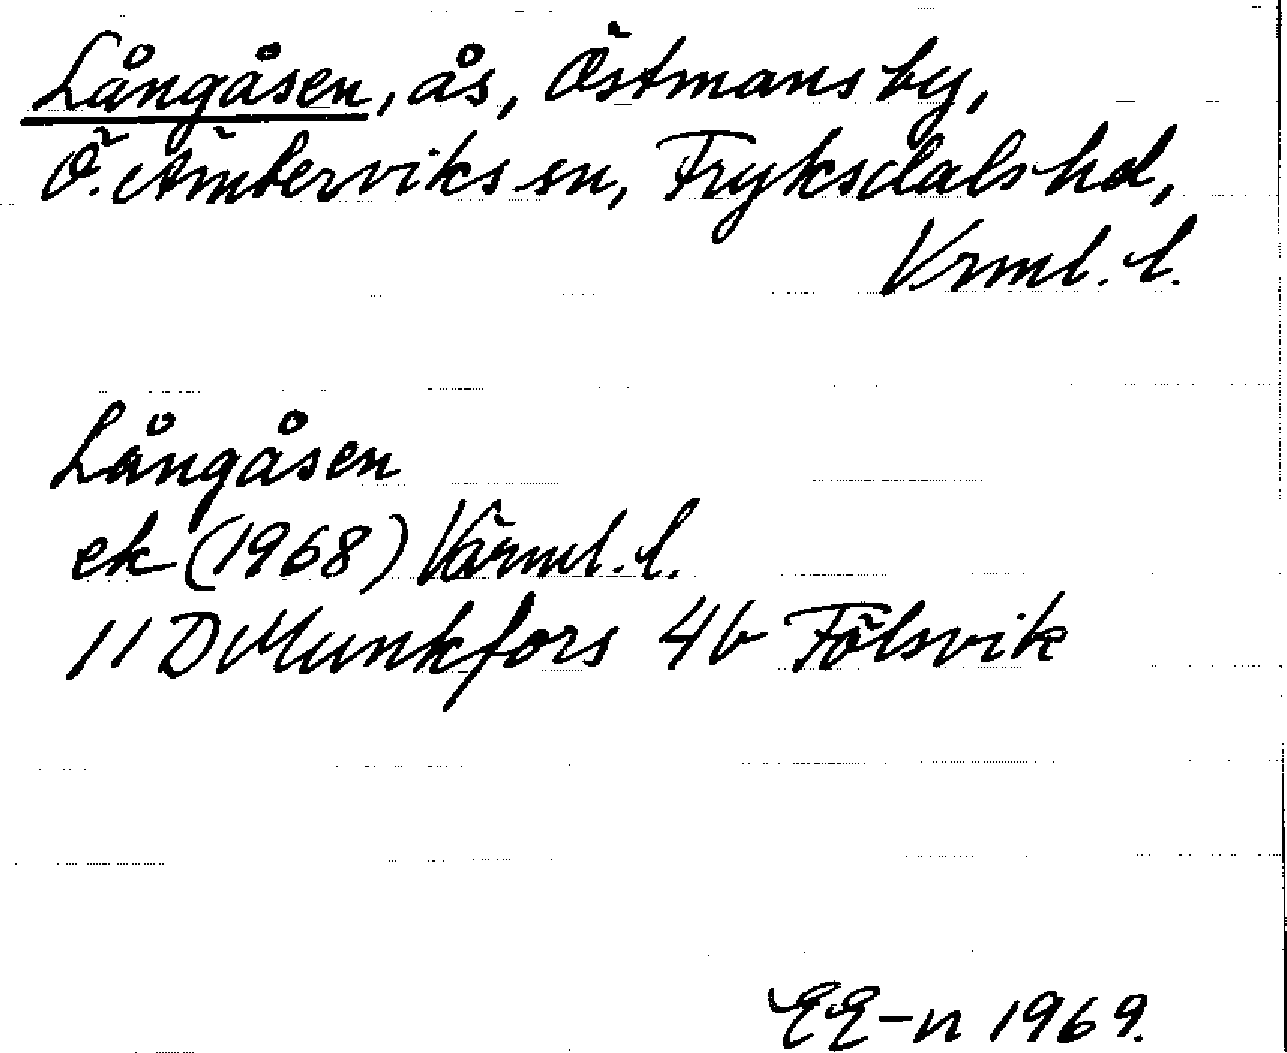 Långåsen, ås, Östmansby,
Ö. Ämterviks sn, Fryksdals hd,
Vrml. l.
Långåsen
ek (1968) Värml. l.
11 D Munkfors 4b Fölsvik
EE-n 1969.